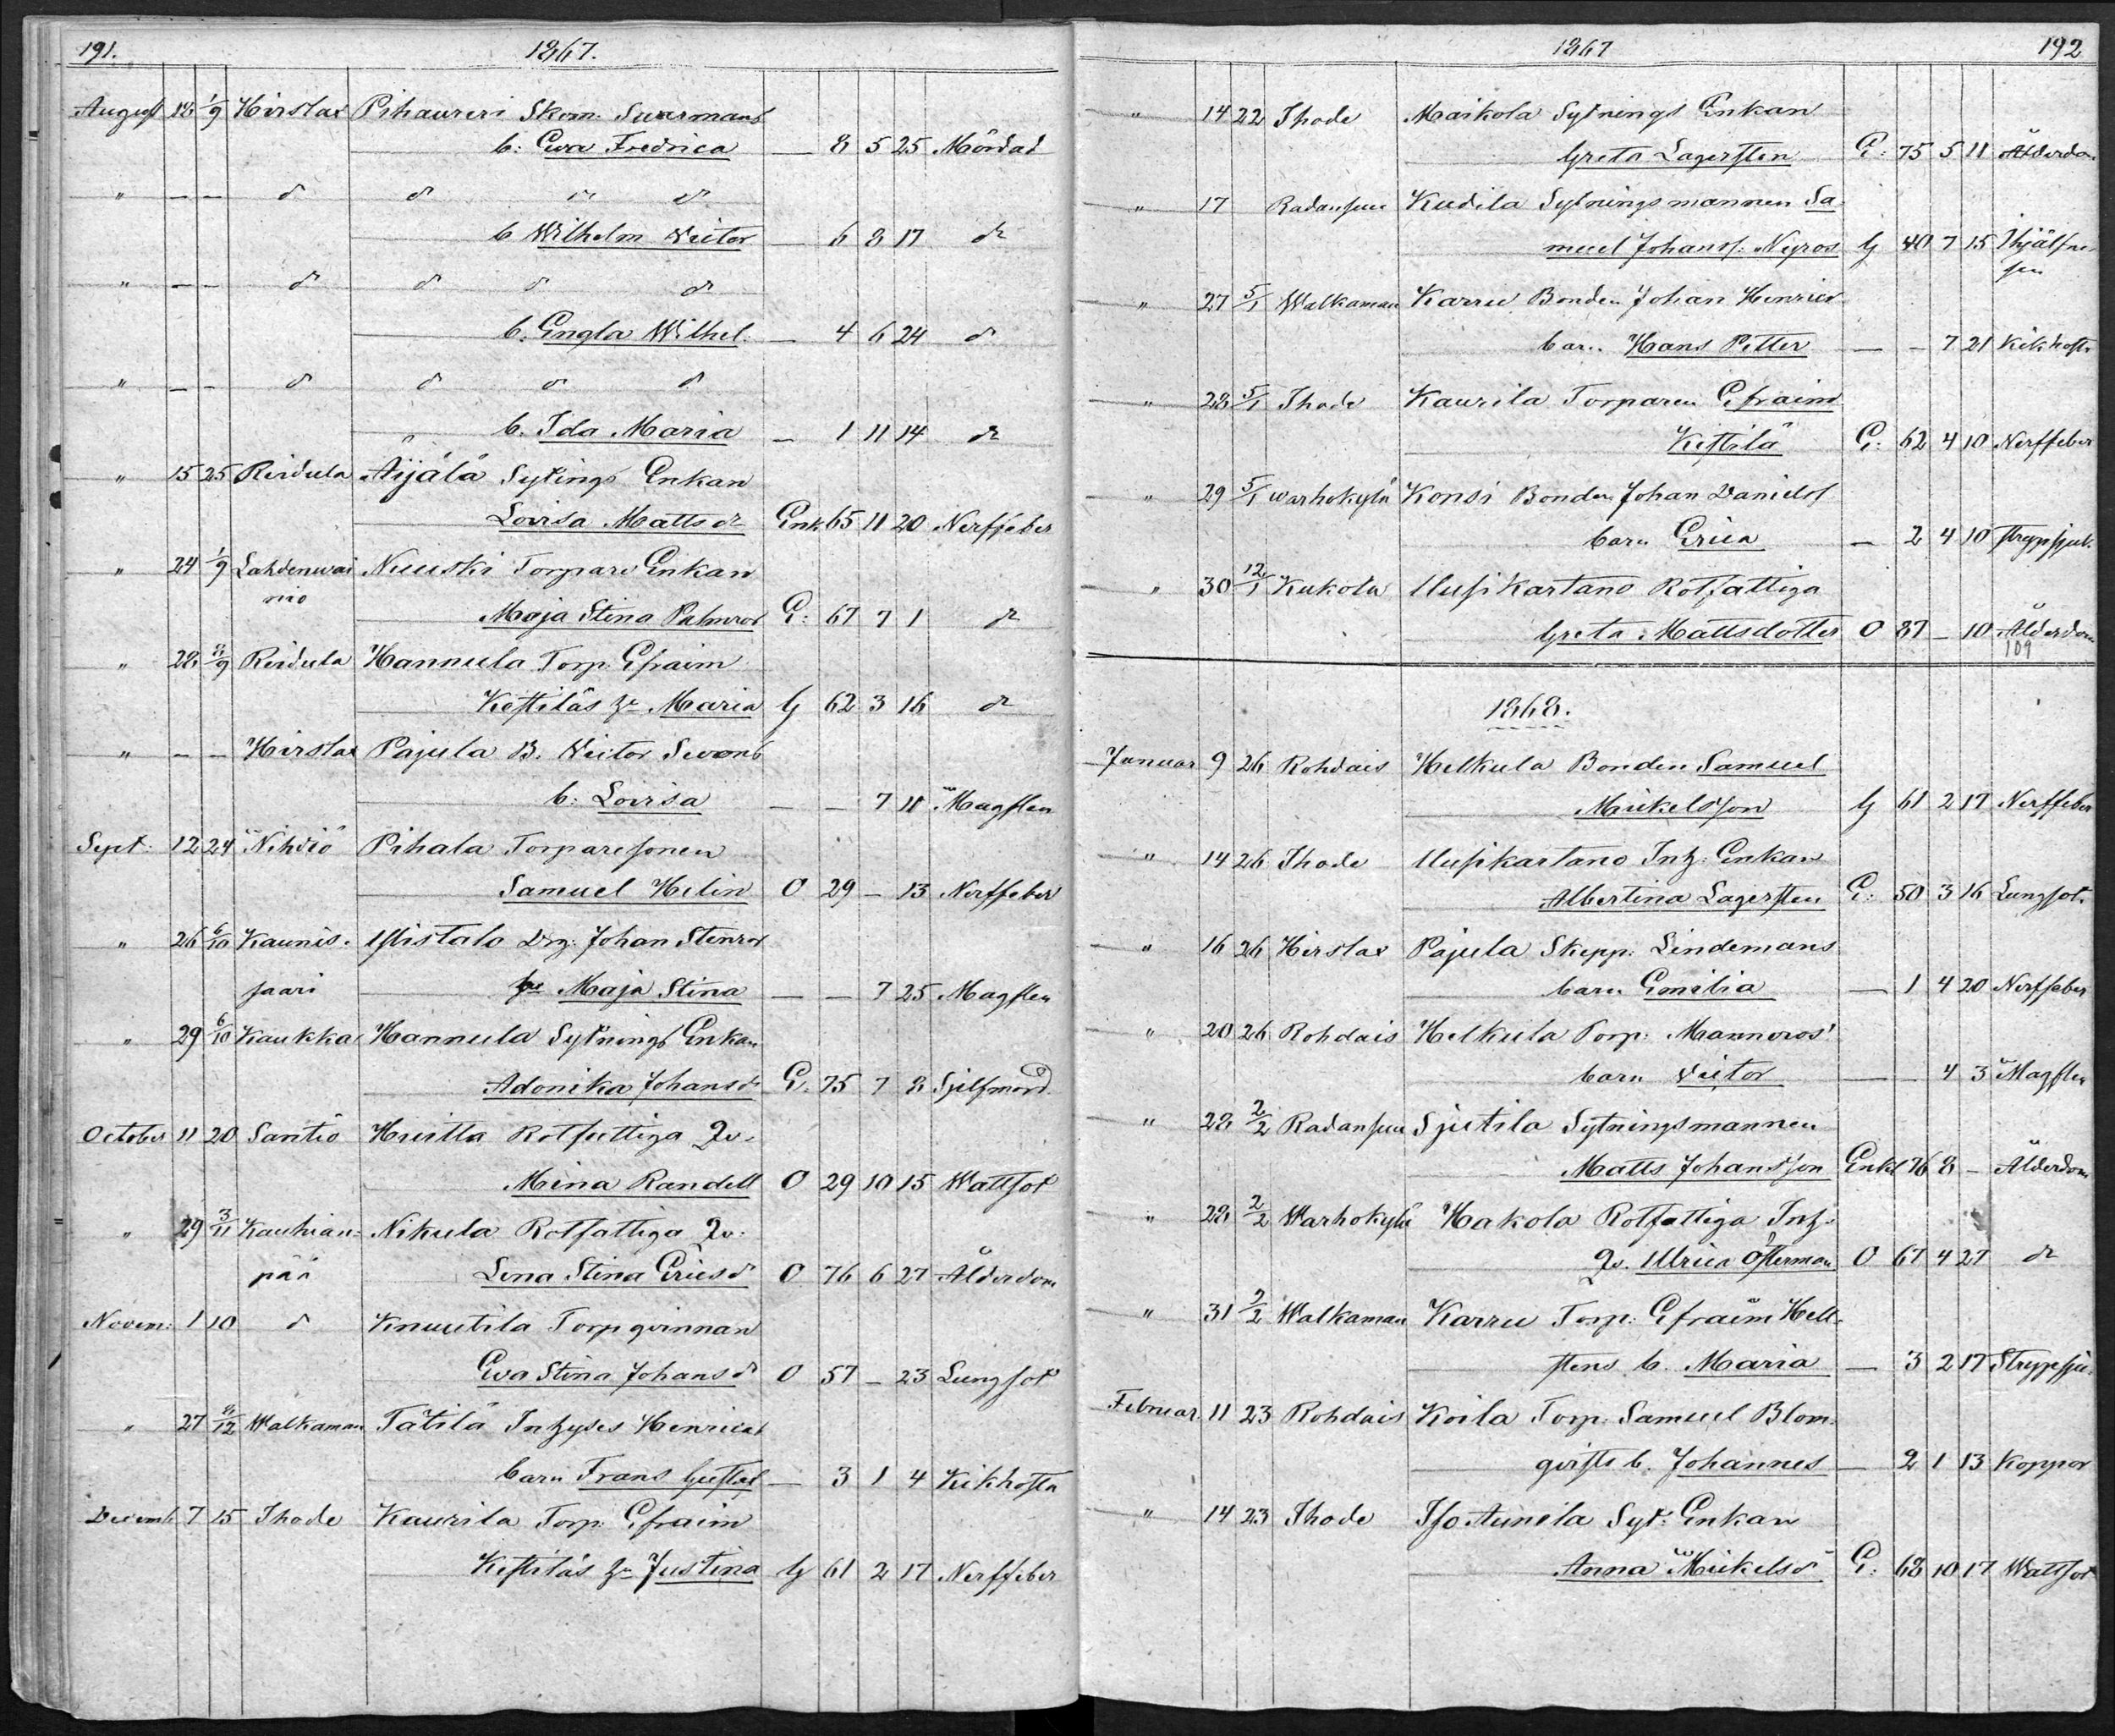 191. 1867.
August 18 1/9 Hirslax Pihaureri Skom. Swarmans
b: Ewa Fredrica — 8 5 25 Mördad
" — — d d d d
b Wilhelm Victor — 6 8 17 d
" — — d d d d
b. Engla Wilhel. — 4 6 24 d
" — — d d d d
b. Ida Maria — 1 11 14 d
" 15 25 Reidula Äijälä Sytings Enkan
Lovisa Mattsdr Enk. 65 11 20 Nerffeber
" 24 1/9 Lahdenwai Nuuski Torpare Enkan
nio
Maja Stina Palmros E: 67 7 1 d
" 28 8/9 Reidula Hannula Torp. Efraim
Kestiläs h. Maria G 62 3 16 d
" — — Hirslax Pajula B. Victor Swens
b: Lovisa — — 7 11 Magflen
Sept. 12 24 Nihdiö Pihala Torparesonen
Samuel Helin O 29 — 13 Nerffeber
" 26 6/10 Kaunis- Ylistalo Drg. Johan Stenros
saari Maja Stina — — 7 25 Magflen
" 29 6/10 Kaukka Hannula Sytnings Enkan
Adonika Johansdr E. 75 7 8 Sjelfmord
October 11 20 Santio Rotfattiga Qv.
Mina Randell O 29 10 15 Wattsot
" 29 3/11 Kauhian- Nikula Rotfattiga Qv.
pää Lena Stina Ericsd O 76 6 27 Ålderdom
Novem: 1 10 d Knuutila Torp qvinnan
Ewa Stina Johansd O 57 — 23 Lungsot
" 27 8/12 Walkaman Tätilä Inhyses Henrics
barn Frans Gustaf — 3 1 4 Kikhosta
Decemb. 7 15 Ihode Kaurila Torp. Efraim
Kestiläs h. Justina G 61 2 17 Nerffeber
1867 192
" 14 22 Ihode Maikola Sytnings Enkan
Greta Lagersten E: 75 5 11 Ålderdom
" 17 Radansuu Kudila Sytningsmannen Sa
muel Johanss. Nyros G 40 7 15 Ihjälfru-
sen
" 27 5/1 Walkaman Karru Bonden Johan Henrics
barn Hans Petter — — 7 21 Kikhosta
" 28 5/1 Ihode Kaurila Torparen Efraim
Kestilä E: 62 4 10 Nerffeber
" 29 5/1 Warhokylä Konsi Bonden Johan Daniels
barn Erica — 2 4 10 Strypsjuk.
" 30 12/1 Kukola Uusikartano Rotfattiga
Greta Mattsdotter O 87 — 10 Ålderdom
109
1868.
Januar 9 26 Rohdais Helkula Bonden Samuel
Mickelsson G 61 2 17 Nerffeber
" 14 26 Ihode Uusikartano Inh. Enkan
Albertina Lagersten E: 50 3 16 Lungsot.
" 16 26 Hirslax Pajula Skepp. Lindemans
barn Emilia — 1 4 20 Nerffeber
" 20 26 Rohdais Helkula Torp. Mannros'
barn Victor — — 4 3 Magflen
" 28 2/2 Radansuu Sjutila Sytningsmannen
Matts Johansson Enkl 76 8 — Ålderdom
" 28 2/2 Warhokylä Hakola Rotfattiga Inh.
Qv. Ulrica Österman O 67 4 27 d
" 31 2/2 Walkaman Karru Torp. Efraim Hell-
stens b. Maria — 3 2 17 Strypsju-
Februar. 11 23 Rohdais Koila Torp. Samuel Blom-
qvists b. Johannes — 2 1 13 Koppor
" 14 23 Ihode Iso Aunela Syt: Enkan
Anna Mickelsd E: 68 10 17 Wattsot